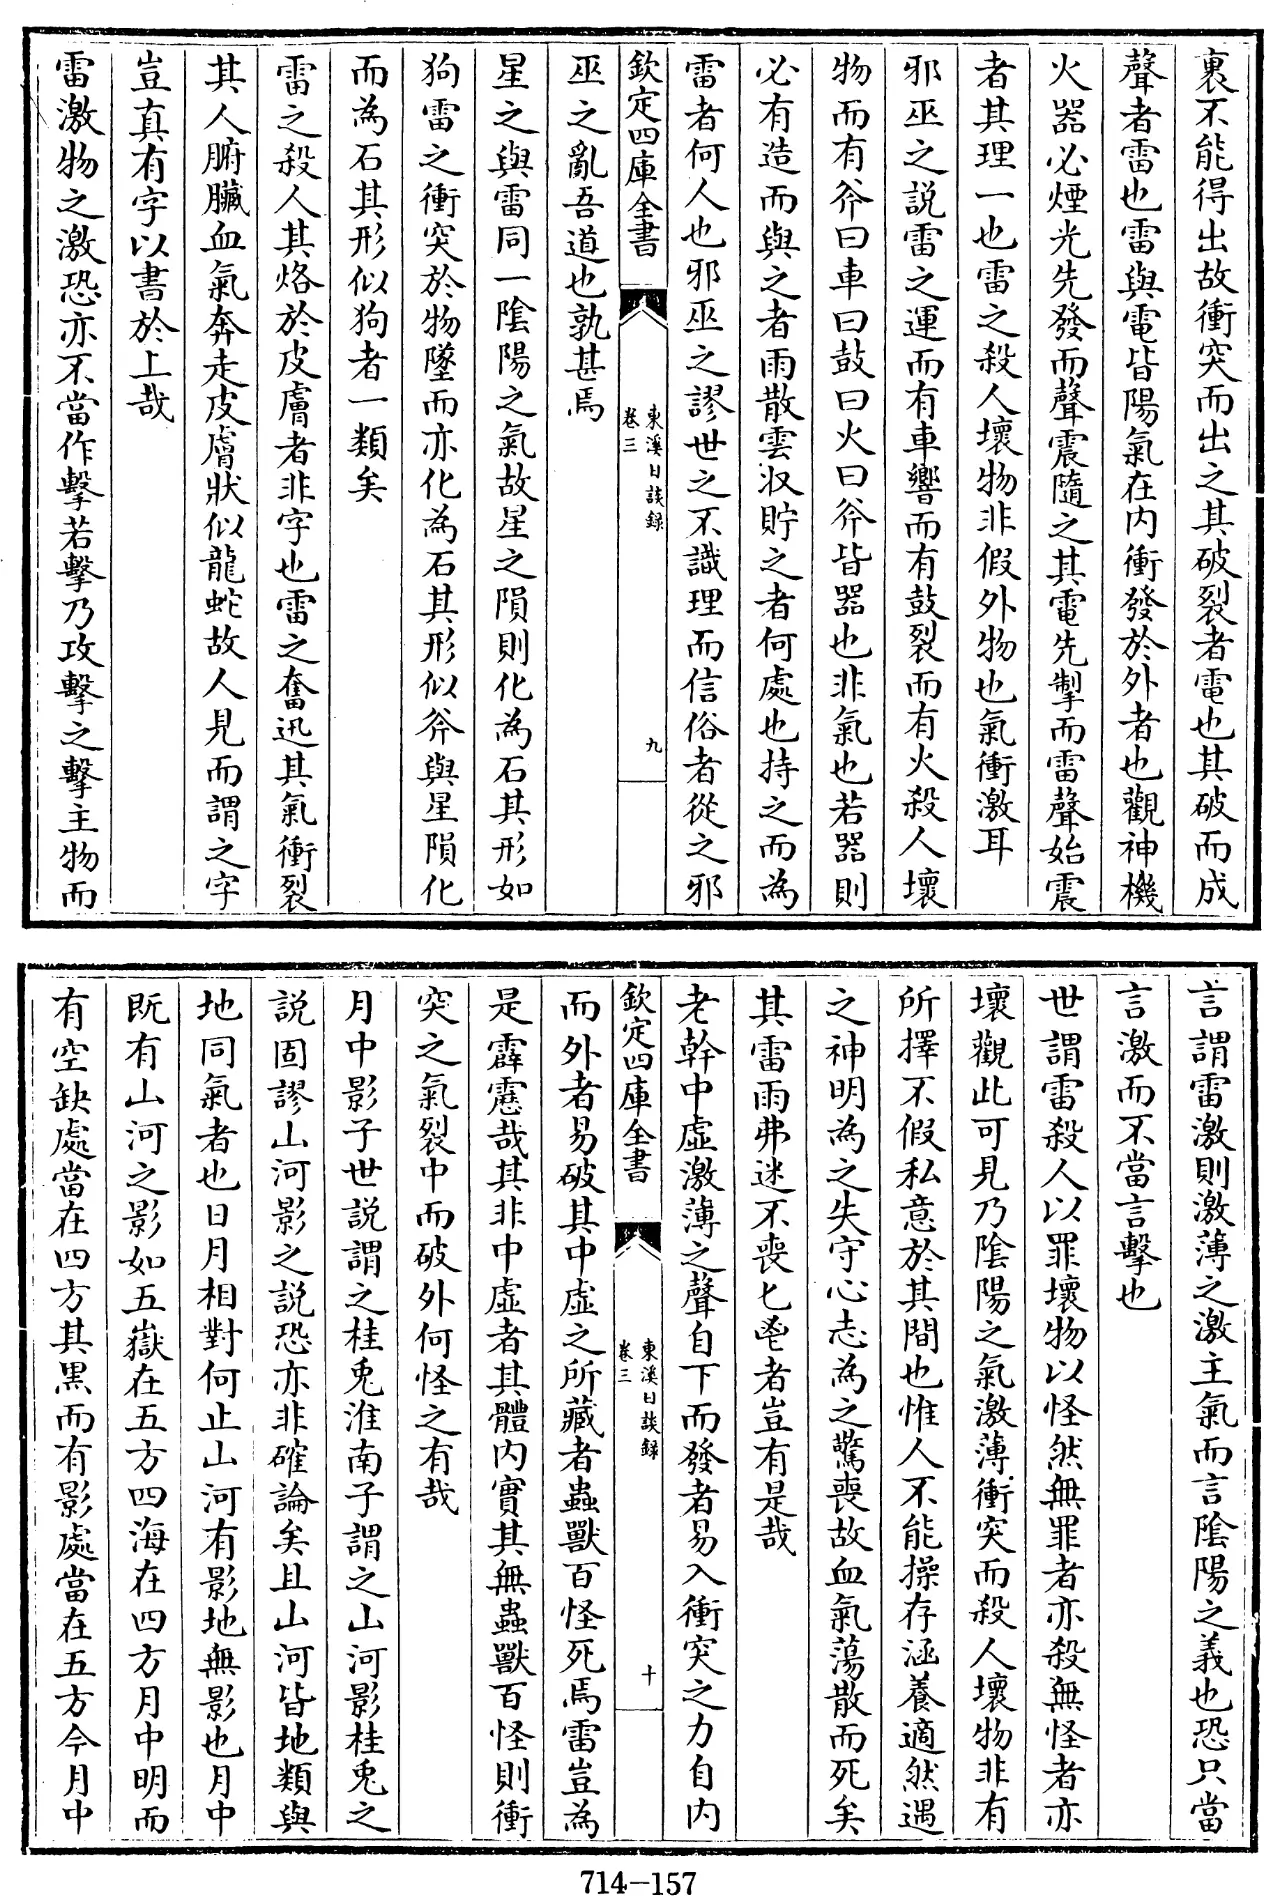 裏不能得出故衝突而出之其破裂者電也其破而成
聲者雷也雷與電皆陽氣在内衝發於外者也觀神機
火器必煙光先發而聲震隨之其電先掣而雷聲始震
者其理一也雷之殺人壞物非假外物也氣衝激耳
邪巫之説雷之運而有車響而有鼓裂而有火殺人壞
物而有斧曰車曰鼓曰火曰斧皆器也非氣也若器則
必有造而與之者雨散雲収貯之者何處也持之而為
雷者何人也邪巫之謬世之不識理而信俗者從之邪
欽定四庫全書
東溪日談録
卷三
九
巫之亂吾道也孰甚焉
星之與雷同一陰陽之氣故星之隕則化為石其形如
狗雷之衝突於物墜而亦化為石其形似斧與星隕化
而為石其形似狗者一類矣
雷之殺人其烙於皮膚者非字也雷之奮迅其氣衝裂
其人腑臟血氣奔走皮膚狀似龍蛇故人見而謂之字
豈真有字以書於上哉
雷激物之激恐亦不當作擊若擊乃攻擊之擊主物而
言謂雷激則激薄之激主氣而言陰陽之義也恐只當
言激而不當言擊也
世謂雷殺人以罪壞物以怪然無罪者亦殺無怪者亦
壞觀此可見乃陰陽之氣激薄衝突而殺人壞物非有
所擇不假私意於其間也惟人不能操存涵養適然遇
之神明為之失守心志為之驚喪故血氣蕩散而死矣
其雷雨弗迷不喪匕鬯者豈有是哉
老幹中虛激薄之聲自下而發者易入衝突之力自内
欽定四庫全書
東溪日談録
卷三
十
而外者易破其中虛之所藏者蟲獸百怪死焉雷豈為
是霹靂哉其非中虛者其體内實其無蟲獸百怪則衝
突之氣裂中而破外何怪之有哉
月中影子世説謂之桂兎淮南子謂之山河影桂兎之
説固謬山河影之説恐亦非確論矣且山河皆地類與
地同氣者也日月相對何止山河有影地無影也月中
既有山河之影如五嶽在五方四海在四方月中明而
有空缺處當在四方其黑而有影處當在五方今月中
714—157